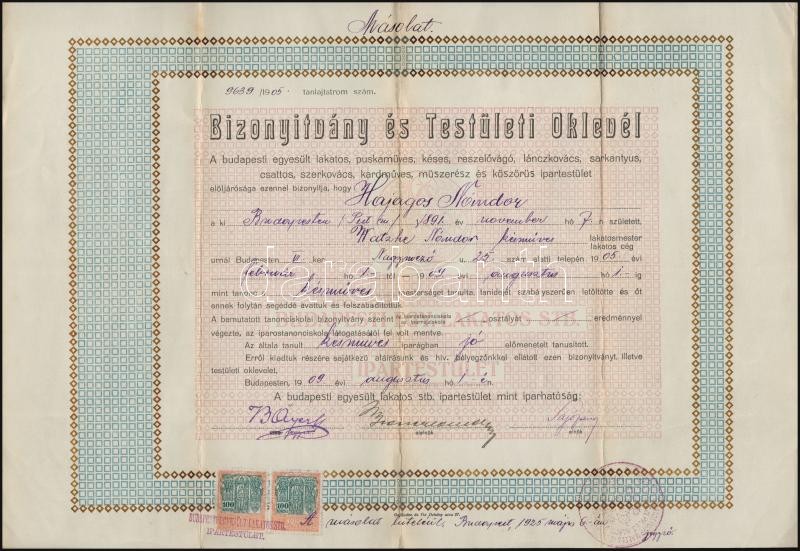 Másolat.
9639 /1905. tanlajtstrom szám.
Bizonyitvány és Testületi Oklevél
A budapesti egyesült lakatos, puskamüves, késes, reszelővágó, lánczkovács, sarkantyus,
csattos, szerkovács, kardmüves, müszerész és köszörüs ipartestület
elöljárósága ezennel bizonyitja, hogy Hajagos Nándor
a ki Budapesten (Pest m.) 1891. év november hó 7-n született,
Nándor késmüves lakatosmester
lakatos cég
urnál Budapesten ker u. 25 szám alatti telepén 1905 évi
február hó 1- től 1909 augusztus hó 1- ig
mint tanoncz késmüves mesterséget tanulta, tanidejét szabályszerüen letöltötte és őt
ennek folytán segéddé avattuk és felszabaditottuk.
A bemutatott tanonciskolai bizonyitvány szerint az iparostanonciskola osztályát eredménnyel
végezte, az iparostanonciskola látogatásától fel volt mentve.
Az általa tanult késmüves iparágban jó előmenetelt tanusitott.
Erről kiadtuk részére sajátkezü aláirásunk és hiv. bélyegzőnkkel ellátott ezen bizonyitványt, illetve
testületi oklevelet.
Budapesten, 1909 évi augusztus hó 1-én.
A budapesti egyesült lakatos stb. ipartestület mint iparhatóság:
jegyző alelnök elnök
100 100
BUDAPESTI EGYESÜLT LAKATOS STB.
IPARTESTÜLET.
A másolat hiteléül: Budapest, 1925 május 6-án
jegyző
darabanth
LAKATOS STB.
IPARTESTÜLET